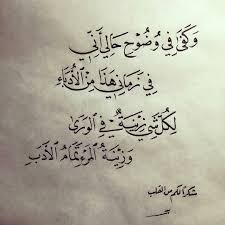 وَكَفَى فِي وُضُوحِ حَالِي أَنِّي
فِي زَمَانِي هَذَا مِنَ الْأُدَبَاءِ
لِكُلِّ شَيْءٍ زِينَةٌ فِي الْوَرَى
وَزِينَةُ الْمَرْءِ تَمَامُ الْأَدَبِ
شكرا لكم من القلب